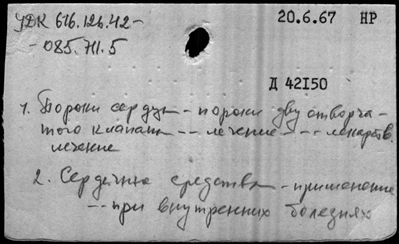 УДК 616.126.42-
-085.711.5
20.6.67 НР
Д 42150
1. Пороки сердца - пороки двустворча-
того клапана -- лечение -- лекарств.
лечение
2. Сердечные средства - применение
-- при внутренних болезнях